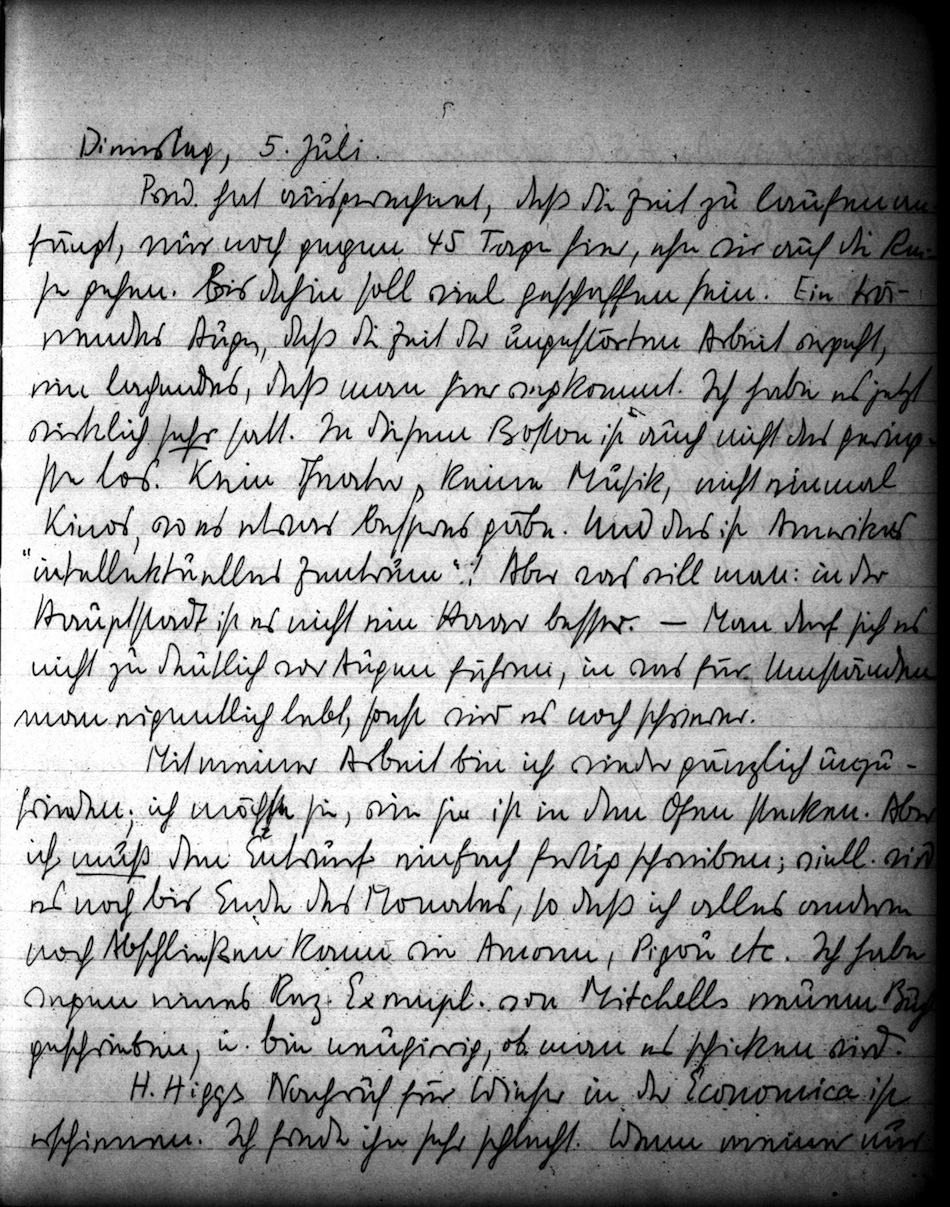 Dienstag, 5. Juli.
Pond. hat ausgerechnet, daß die Zeit zu laufen an-
fängt, nur noch gegen 45 Tage hier, ehe wir auf die Rei-
se gehen. Bis dahin soll viel geschaffen sein. Ein trä-
nendes Auge, daß die Zeit der ungestörten Arbeit vergeht,
ein lachendes, daß man hier wegkommt. Ich habe es jetzt
wirklich sehr satt. In diesem Boston ist auch nicht das gering-
ste los. Kein Theater, keine Musik, nicht einmal
Kinos, wo es etwas besseres gäbe. Und das ist Amerikas
"intellektuelles Zentrum"! Aber was will man: in der
Hauptstadt ist es nicht ein Haar besser. — Man darf sich es
nicht zu deutlich vor Augen führen, in was für Umständen
man eigentlich lebt, sonst wird es noch schwerer.
Mit meiner Arbeit bin ich wieder gänzlich unzu-
frieden; ich möchte sie, wie sie ist in den Ofen stecken. Aber
ich muß den Entwurf einfach fertig schreiben; viell. wird
es noch bis Ende des Monates, so daß ich alles andere
noch Abschließen kann wie Amonn, Pigou etc. Ich habe
wegen eines Rez. Exempl. von Mitchells neuem Buch
geschrieben, u. bin neugierig, ob man es schicken wird.
H. Higgs Nachruf für Wieser in der Economica ist
erschienen. Ich finde ihn sehr schlecht. Wenn meiner nur